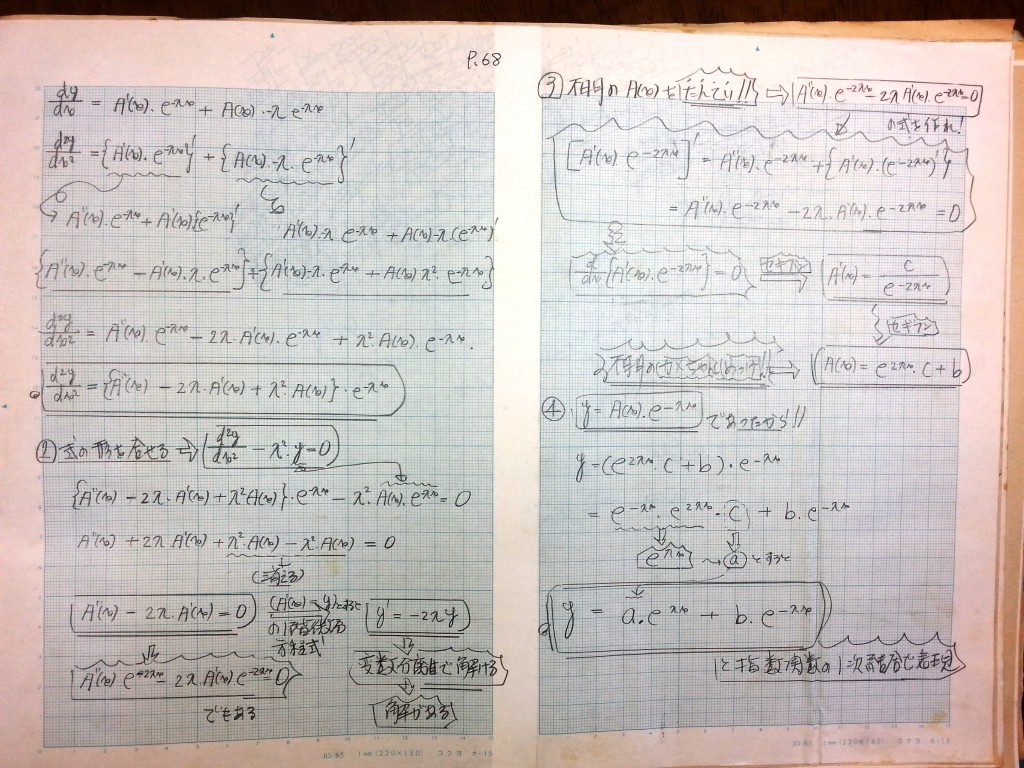 P.68
dy/dx = A'(x)・e^-λx + A(x)・-λ e^-λx
d²y/dx² = {A'(x)・e^-λx}' + {A(x)・-λ・e^-λx}'
A''(x)・e^-λx + A'(x){e^-λx}' A'(x)・-λ e^-λx + A(x)・-λ(e^-λx)'
{A''(x)・e^-λx - A'(x)・λ・e^-λx} + {A'(x)・-λ・e^-λx + A(x) λ²・e^-λx}
d²y/dx² = A''(x)・e^-λx - 2λ・A'(x)・e^-λx + λ²・A(x)・e^-λx.
d²y/dx² = {A''(x) - 2λ・A'(x) + λ²・A(x)}・e^-λx
② 式の形を合せる ⇒ d²y/dx² - λ²・y = 0
{A''(x) - 2λ・A'(x) + λ²A(x)}・e^-λx - λ²・A(x)・e^-λx = 0
A''(x) + 2λ・A'(x) + λ²・A(x) - λ²・A(x) = 0
(消える)
A''(x) - 2λ・A'(x) = 0
(A'(x) = y)とすると
の1階微分
方程式
y' = -2λy
変数分離で解ける
解がある
でもある
③ A(x)
⇒ A''(x)・e^-2λx - 2λA'(x)・e^-2λx = 0
の式を作れ!
[A'(x) e^-2λx]' = A''(x)・e^-2λx + {A'(x)・(e^-2λx)'}
= A''(x)・e^-2λx - 2λ・A'(x)・e^-2λx = 0
d/dx{A'(x)・e^-2λx} = 0 セキブン A'(x) = c/e^-2λx
セキブン
⇒ A(x) = e^2λx・c + b
④ y = A(x)・e^-λx であったから!!
y = (e^2λx・c + b)・e^-λx
= e^-λx・e^2λx・c + b・e^-λx
e^λx → a とすると
y = a・e^λx + b・e^-λx
と指数関数の1次結合で表現
JIS-B5 1mm(220×160) コクヨ ホ-15
JIS-B5 1mm(220×160) コクヨ ホ-15